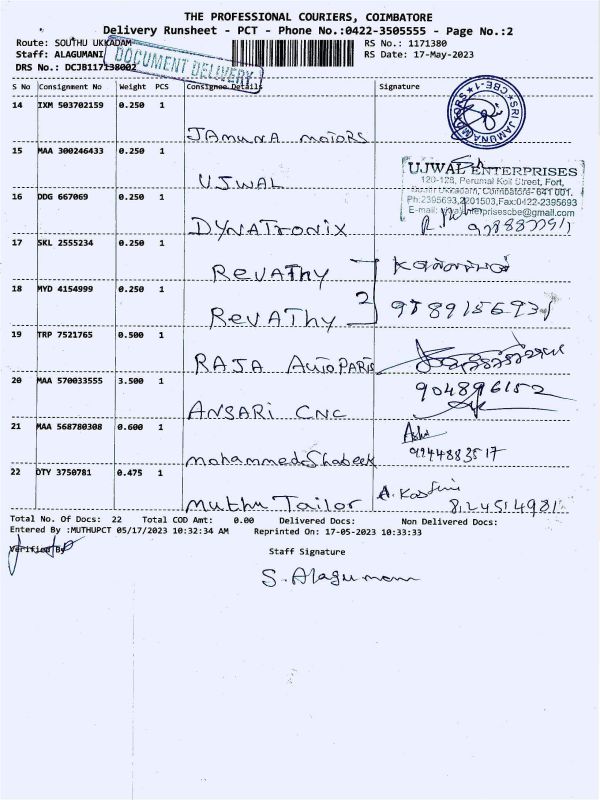 THE PROFESSIONAL COURIERS, COIMBATORE
Delivery Runsheet - PCT - Phone No.:0422-3505555 - Page No.:2
Route: SOUTHU UKKADAM RS No.: 1171380
Staff: ALAGUMANI RS Date: 17-May-2023
DRS No.: DCJB117138002
DOCUMENT DELIVERY
S No Consignment No Weight PCS Consignee Details Signature
14 IXM 503702159 0.250 1
JAMUNA MOTORS
SRI JAMUNA MOTORS CBE-1
15 MAA 300246433 0.250 1
UJWAL
UJWAL ENTERPRISES
120-128, Perumal Koil Street, Fort,
Ukkadam, Coimbatore- 641 001.
Ph:2395693,2201503,Fax:0422-2395693
16 DDG 667069 0.250 1
DYNATronix
17 SKL 2555234 0.250 1
ReVAThy
18 MYD 4154999 0.250 1
ReVAThy 2
19 TRP 7521765 0.500 1
RAJA AutoPARTS
20 MAA 570033555 3.500 1
904896152
ANSARi CNC
21 MAA 568780308 0.600 1
Asha
9244883517
mohammed Shabeek
22 DTY 3750781 0.475 1
muthu Tailor
8124514981
Total No. Of Docs: 22 Total COD Amt: 0.00 Delivered Docs: Non Delivered Docs:
Entered By :MUTHUPCT 05/17/2023 10:32:34 AM Reprinted On: 17-05-2023 10:33:33
Verified By Staff Signature
S. Alagumani